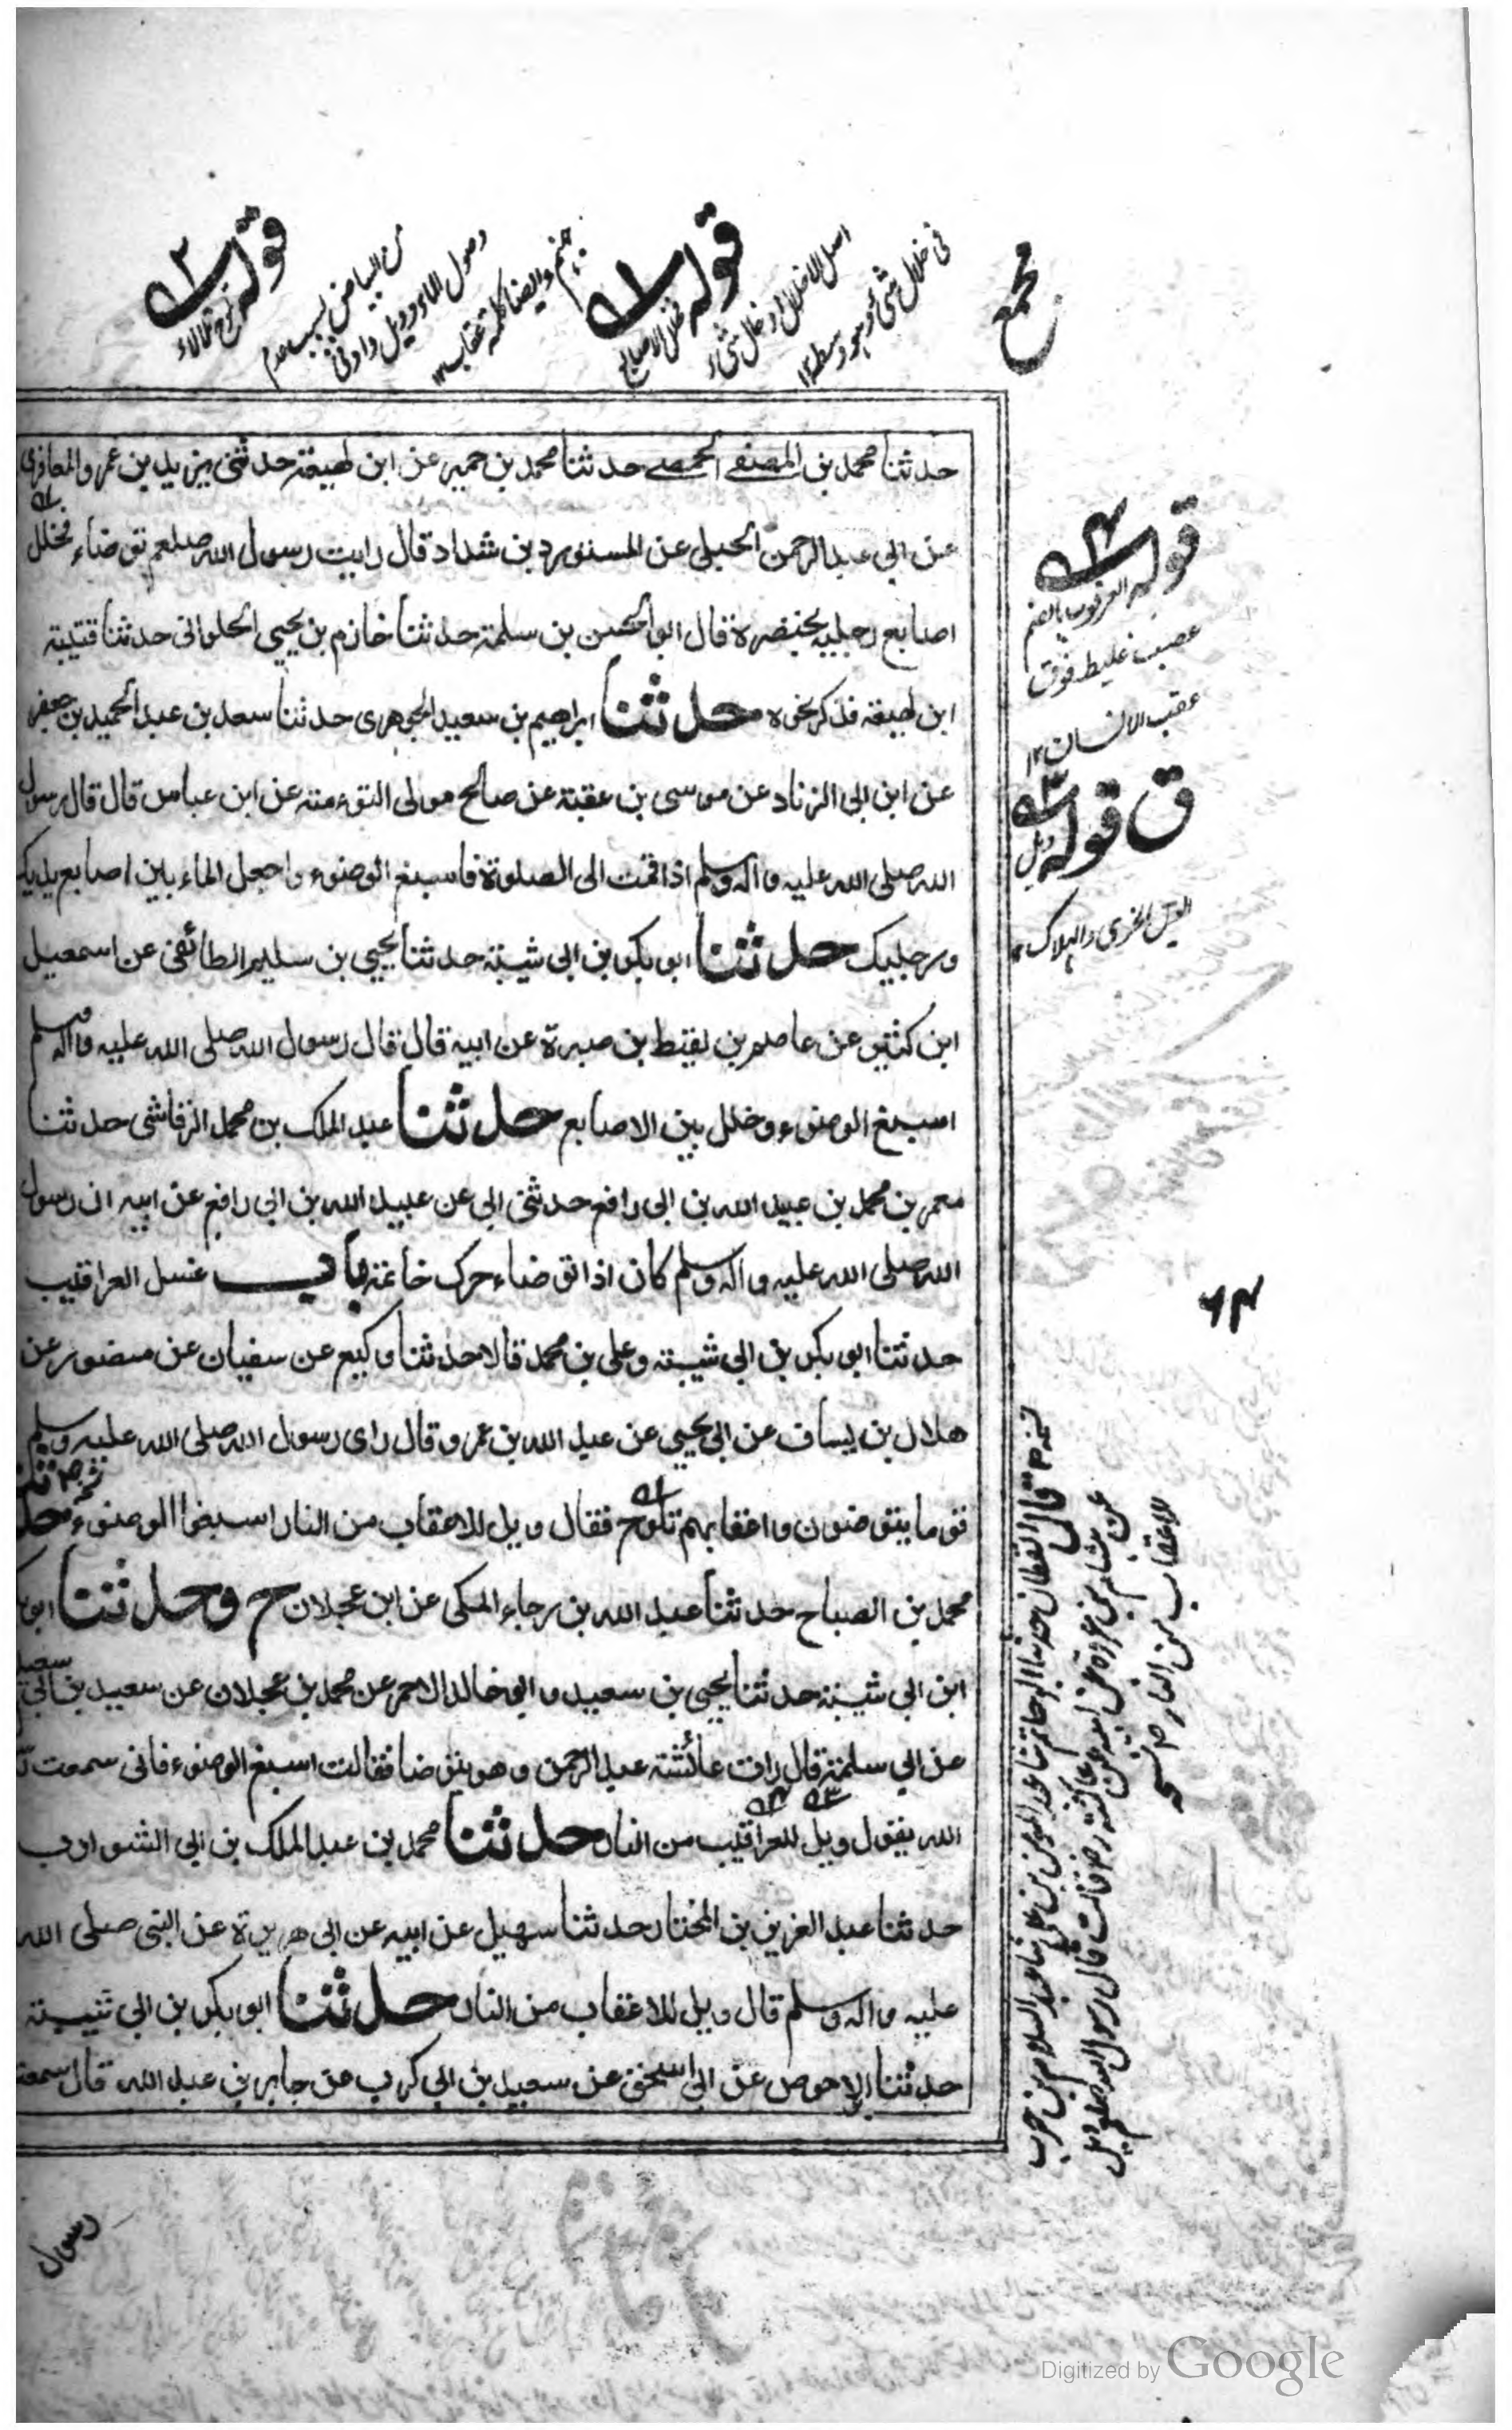 قوله ٢
تلوح تلالاء
من البياض بسبب عدم
وصول الماء وويل واد في
جهنم وايضا كلمة عقاب ١٢
قوله ١
فخلل الاصابع
اصل الاخلال ادخال شيء
في خلال شيء وهو وسطه ١٢
مجمع
حدثنا محمد بن المصفے الحمصے حدثنا محمد بن حمير عن ابن لهيعة حدثنى يزيد بن عمرو المعافرى
عن ابي عبد الرحمن الحبلى عن المستورد بن شداد قال رايت رسول الله صلعم توضاء فخلل
اصابع رجليه بخنصره قال ابو الحسن بن سلمة حدثنا خازم بن يحيى الحلوانى حدثنا قتيبة
ابن لهيعة فذكر نحوه حدثنا ابراهيم بن سعيد الجوهرى حدثنا سعد بن عبد الحميد بن جعفر
عن ابن ابى الزناد عن موسى بن عقبة عن صالح مولى التوءمة عن ابن عباس قال قال رسول
الله صلى الله عليه واله وسلم اذا قمت الى الصلوة فاسبغ الوضوء واجعل الماء بين اصابع يديك
ورجليك حدثنا ابو بكر بن ابى شيبة حدثنا يحيى بن سليم الطائفى عن اسمعيل
ابن كثير عن عاصم بن لقيط بن صبرة عن ابيه قال قال رسول الله صلى الله عليه واله وسلم
اسبغ الوضوء وخلل بين الاصابع حدثنا عبد الملك بن محمد الرقاشى حدثنا
معمر بن محمد بن عبيد الله بن ابى رافع حدثنى ابى عن عبيد الله بن ابى رافع عن ابيه ان رسول
الله صلى الله عليه واله وسلم كان اذا توضاء حرك خاتمه باب غسل العراقيب
حدثنا ابو بكر بن ابى شيبة وعلى بن محمد قالا حدثنا وكيع عن سفيان عن منصور عن
هلال بن يساف عن ابى يحيى عن عبد الله بن عمرو قال راى رسول الله صلى الله عليه وسلم
قوما يتوضئون واعقابهم تلوح فقال ويل للاعقاب من النار اسبغوا الوضوء
محمد بن الصباح حدثنا عبد الله بن رجاء المكى عن ابن عجلان ح وحدثنا ابو
ابن ابى شيبة حدثنا يحيى بن سعيد وابو خالد الاحمر عن محمد بن عجلان عن سعيد بن ابى سعيد
عن ابى سلمة قال رات عائشة عبد الرحمن وهو يتوضا فقالت اسبغ الوضوء فانى سمعت
الله يقول ويل للعراقيب من النار حدثنا محمد بن عبد الملك بن ابى الشوارب
حدثنا عبد العزيز بن المختار حدثنا سهيل عن ابيه عن ابى هريرة عن النبى صلى الله
عليه واله وسلم قال ويل للاعقاب من النار حدثنا ابو بكر بن ابى شيبة
حدثنا الاحوص عن ابى اسحق عن سعيد بن ابى كرب عن جابر بن عبد الله قال سمعت
رسول
قوله ٤
العرقوب بالضم
عصب غليظ فوق
عقب الانسان ١٢
ق قوله ٣
ويل
الويل الحزن والهلاك
٦٤
قال القطان حدثنا ابو حاتم ثنا عبد المومن بن على ثنا عبد السلام بن حرب
عن هشام بن عروة عن ابيه عن عائشة رض قالت قال رسول الله صلعم ويل
للاعقاب من النار نسخه
Digitized by Google